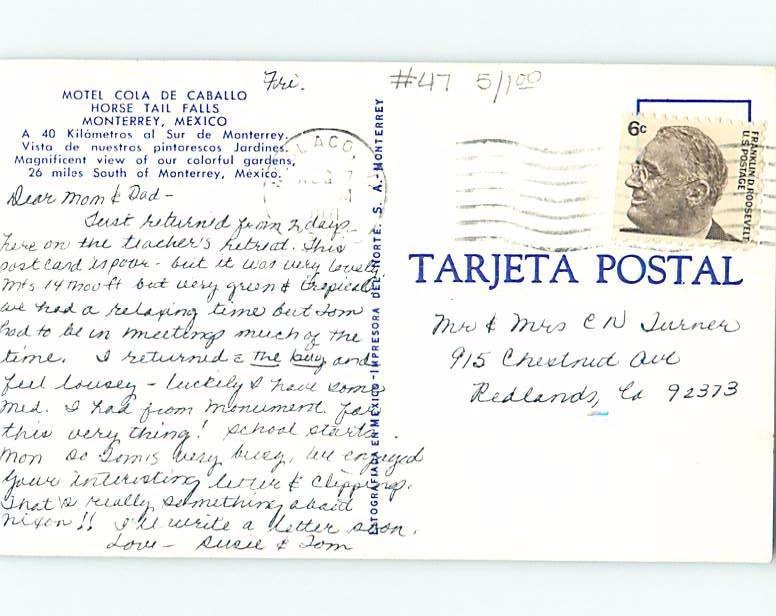 Fri.
#47 5/1.00
MOTEL COLA DE CABALLO
HORSE TAIL FALLS
MONTERREY, MEXICO
A 40 Kilómetros al Sur de Monterrey.
Vista de nuestros pintorescos Jardines.
Magnificent view of our colorful gardens,
26 miles South of Monterrey, México.
Dear Mom & Dad -
Just returned from 2 days
here on the teacher's retreat. This
postcard is poor - but it was very lovely
Mts 14 thou ft but very green & tropical
we had a relaxing time but Tom
had to be in meetings much of the
time. I returned c the bug and
feel lousey - luckely I have some
med. I had from Monument for
this very thing! School starts
Mon so Tom is very busy. We enjoyed
your interesting letter & clippings.
That's really something about
Nixon!! I'll write a letter soon.
Love - Susie & Tom
FOTOGRAFIADA EN MEXICO - IMPRESORA DEL NORTE, S. A. - MONTERREY
LACO,
AUG 7
6c
FRANKLIN D. ROOSEVELT
U.S. POSTAGE
TARJETA POSTAL
Mr & Mrs C N Turner
915 Chestnut Ave
Redlands, Ca 92373